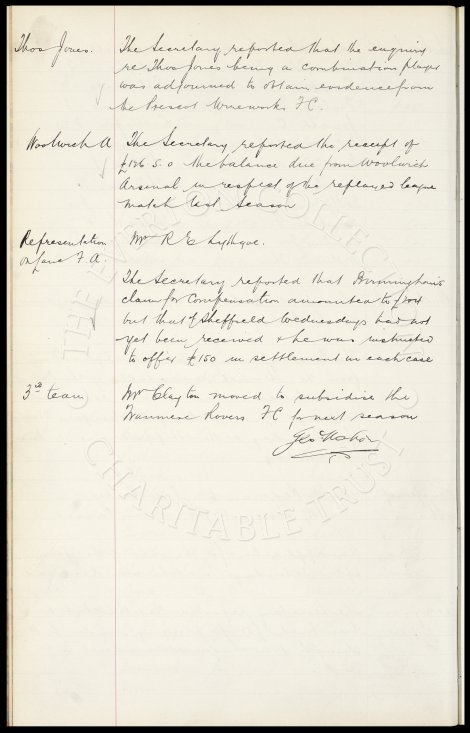 Thos Jones.
The Secretary reported that the enquiry
re Thos Jones being a combination player
was adjourned to obtain evidence from
the Prescot Wireworks FC.
Woolwich A
The Secretary reported the receipt of
£126.5.0 the balance due from Woolwich
Arsenal in respect of the replayed league
match last season
Representation
on Lanc F.A.
Mr R E Lythgoe.
The Secretary reported that Birmingham's
claim for compensation amounted to £204
but that of Sheffield Wednesdays had not
yet been received & he was instructed
to offer £150 in settlement in each case
3rd team
Mr Clayton moved to subsidise the
Tranmere Rovers FC for next season
Geo Mahon
THE EVERTON COLLECTION
CHARITABLE TRUST